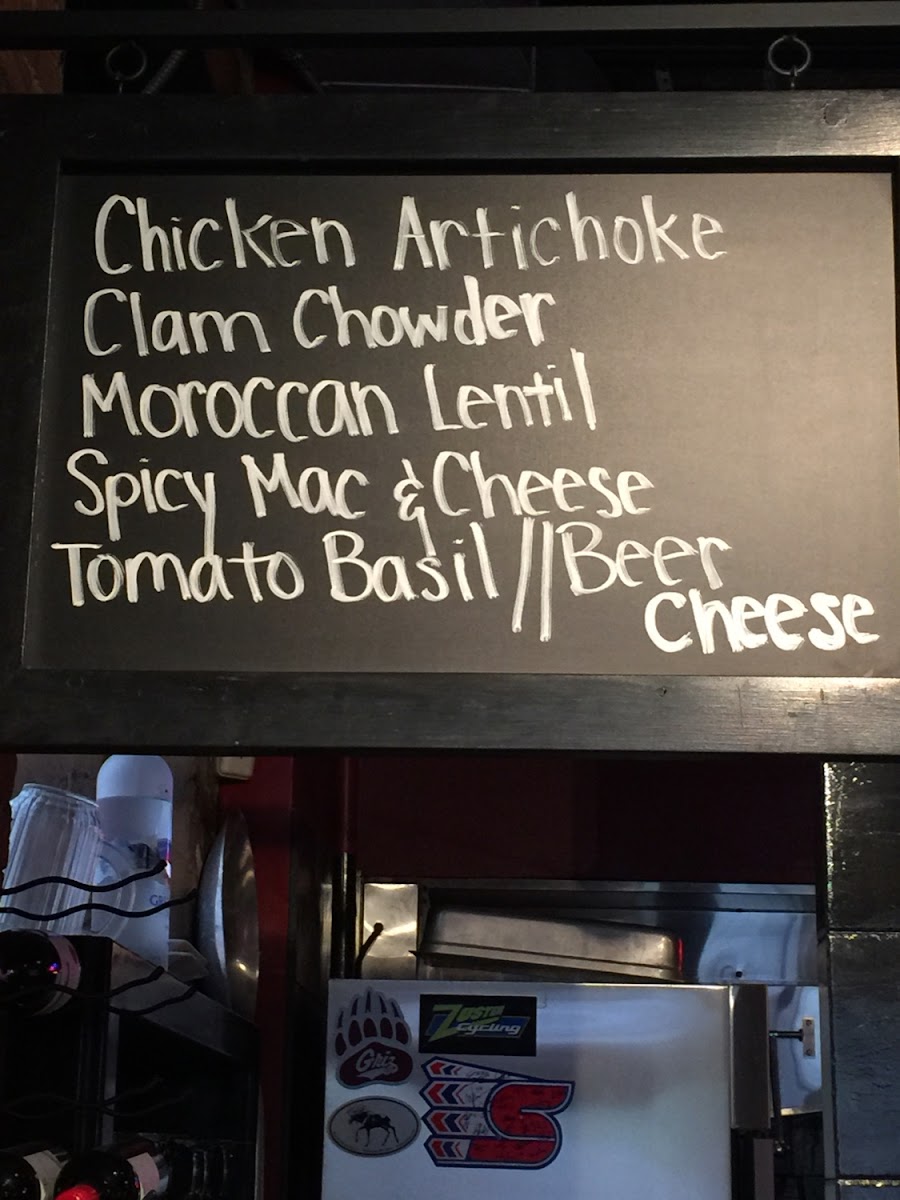 Chicken Artichoke
Clam Chowder
Moroccan Lentil
Spicy Mac & Cheese
Tomato Basil // Beer
Cheese
Griz
Cycling
S